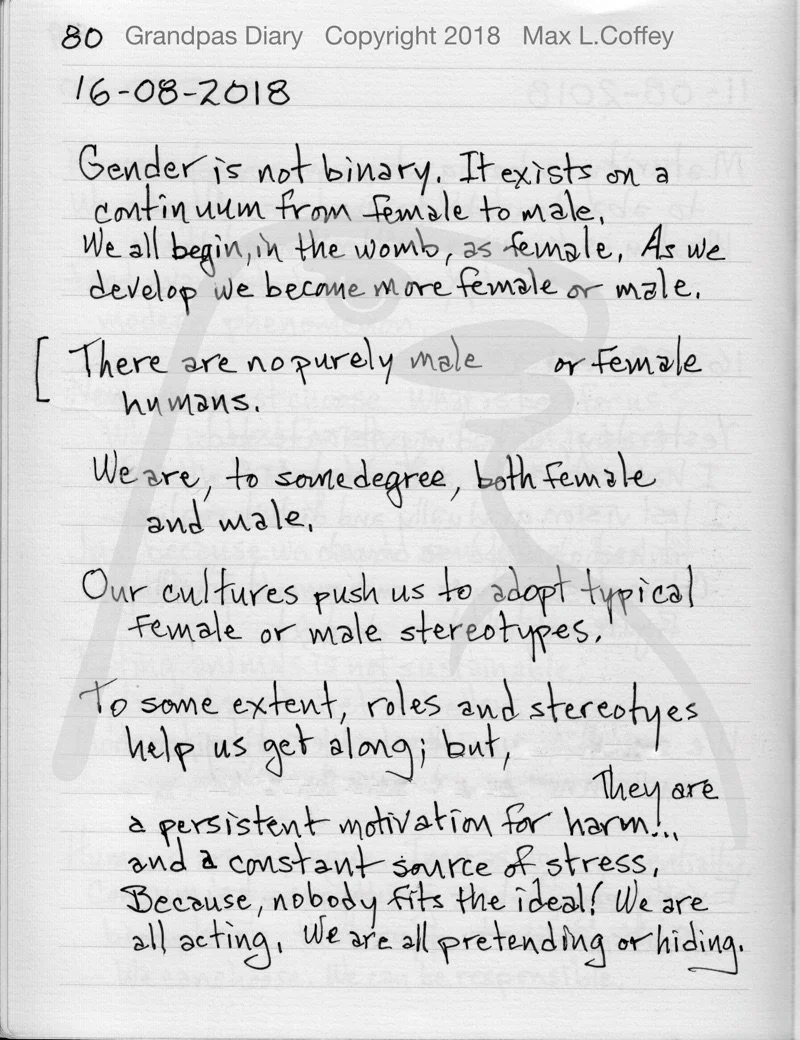 80 Grandpas Diary Copyright 2018 Max L.Coffey
16-08-2018
Gender is not binary. It exists on a
continuum from female to male.
We all begin, in the womb, as female. As we
develop we become more female or male.
[ There are no purely male or female
humans.
We are, to some degree, both female
and male.
Our cultures push us to adopt typical
female or male stereotypes.
To some extent, roles and stereotyes
help us get along; but,
They are
a persistent motivation for harm!..
and a constant source of stress.
Because, nobody fits the ideal! We are
all acting. We are all pretending or hiding.